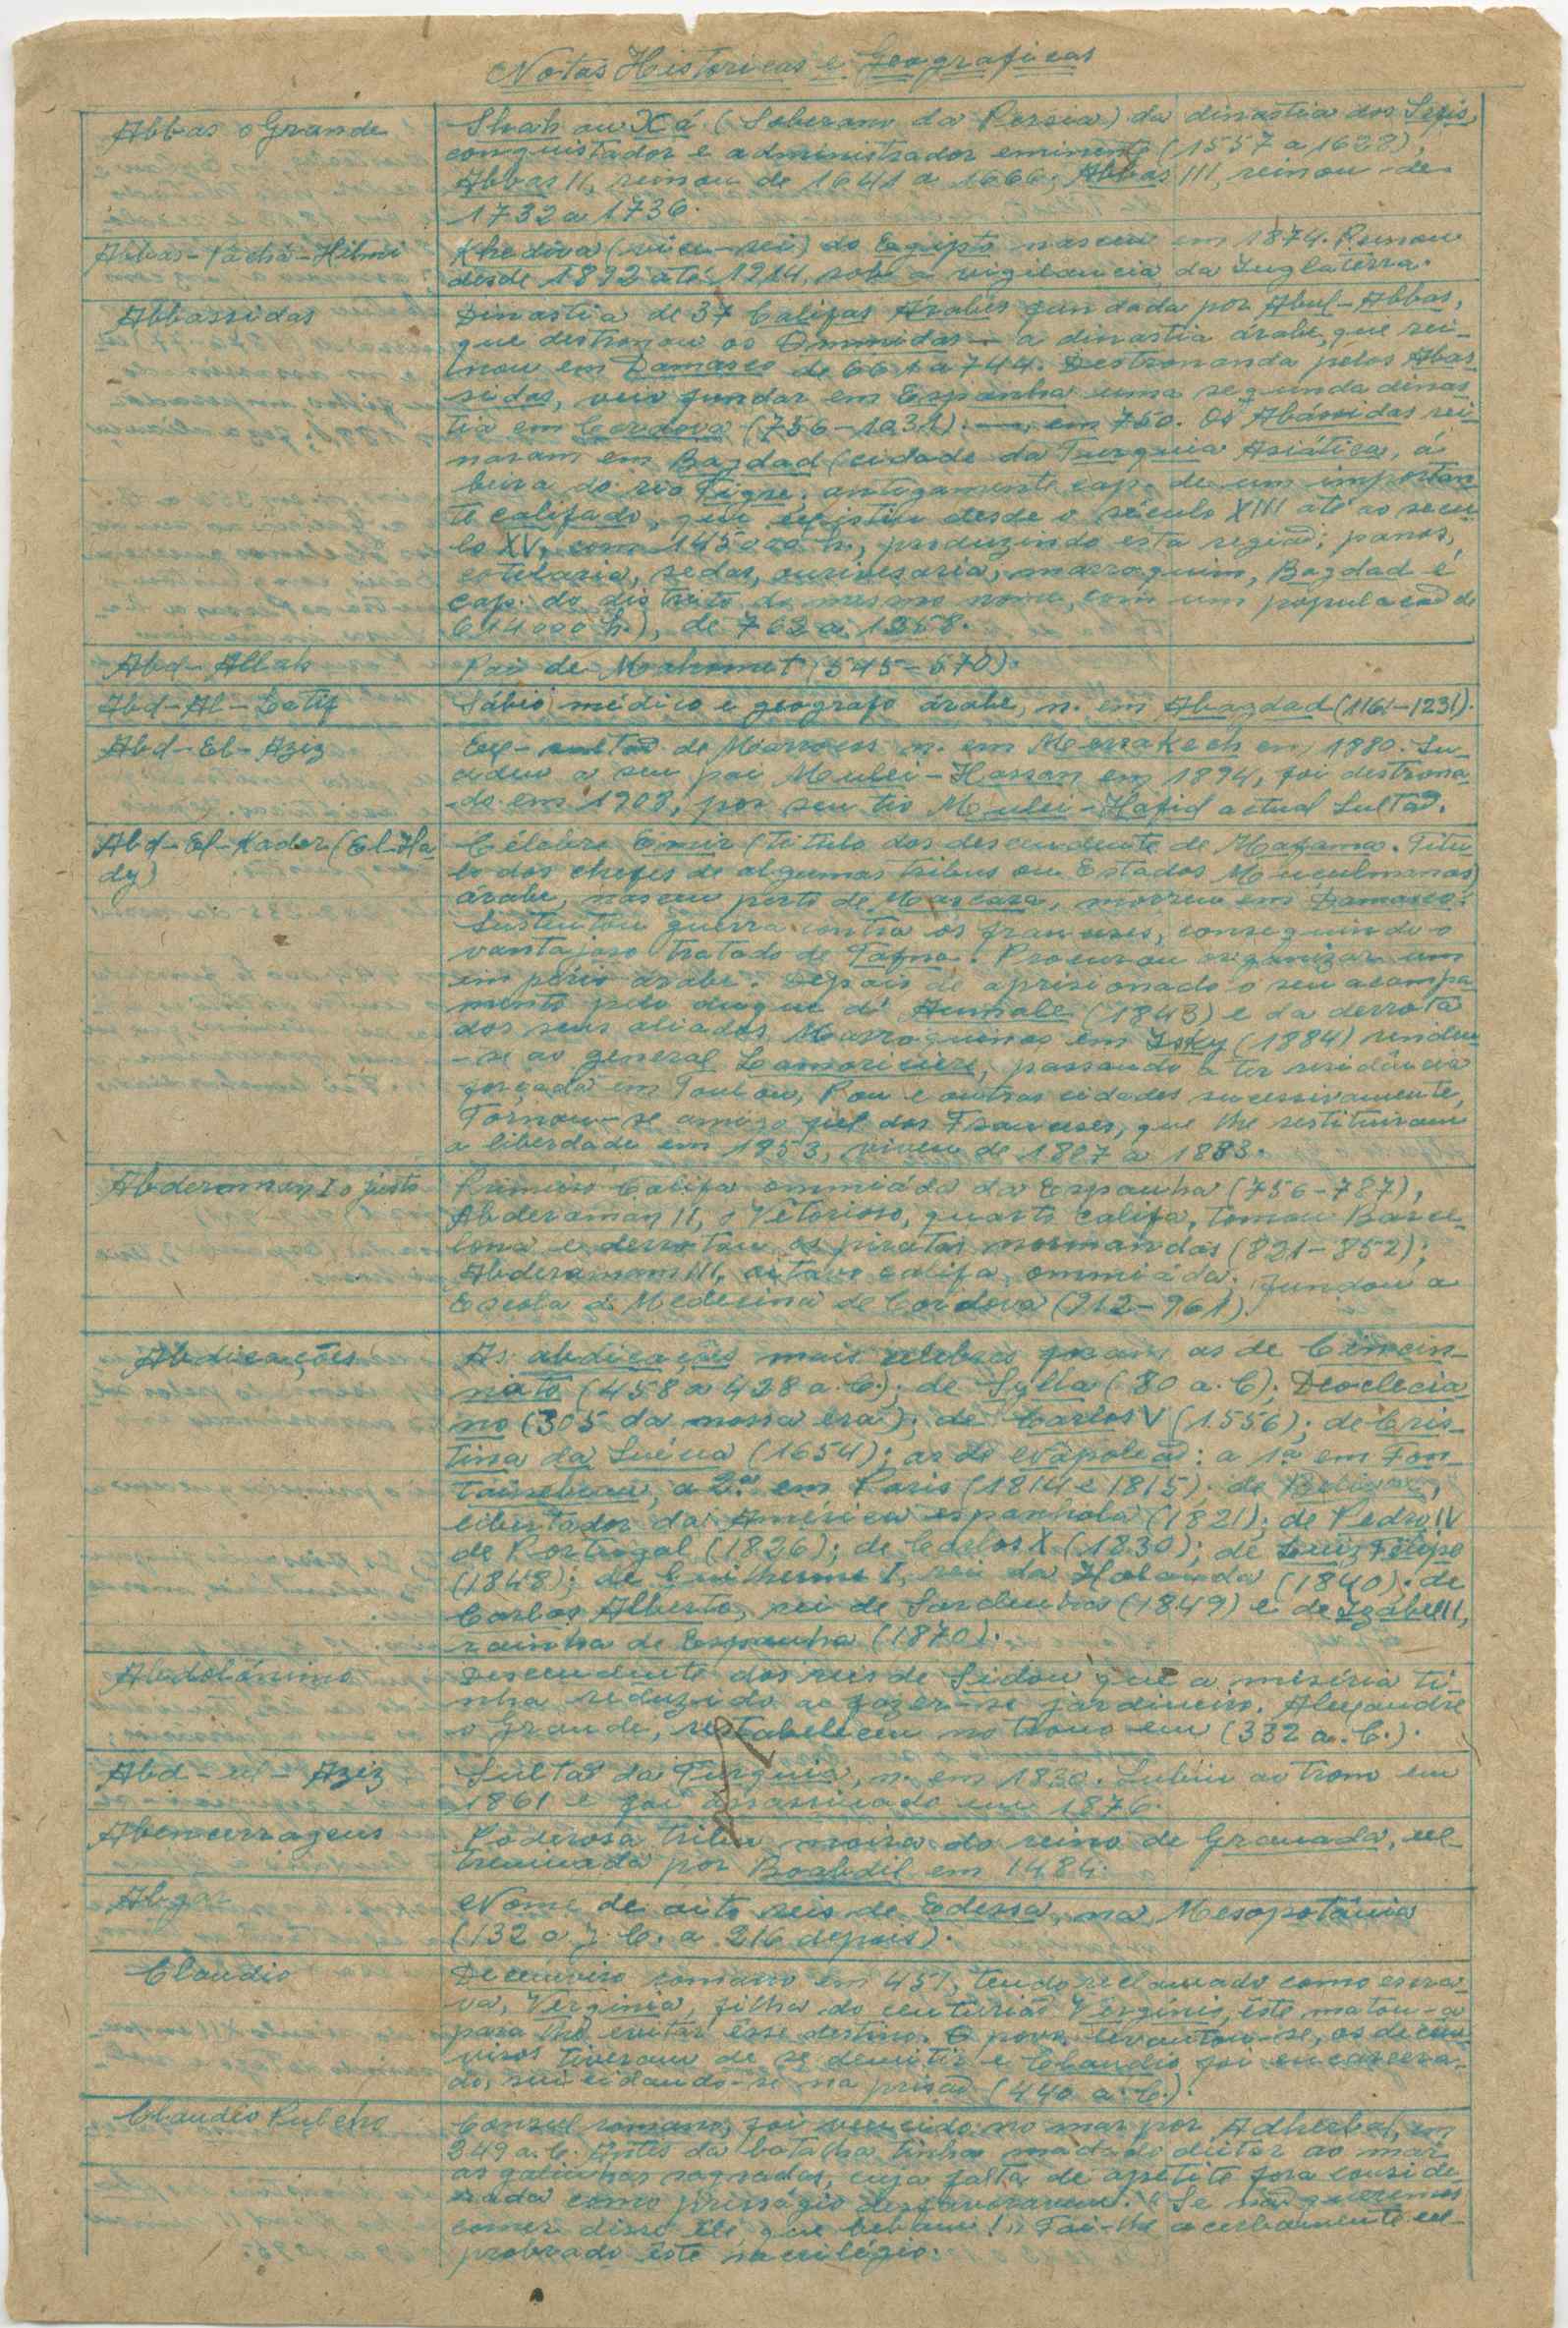 Notas Historicas e Geograficas
Abbas o Grande
Shah ou Xá (Soberano da Persia) da dinastia dos Sefis,
conquistador e administrador eminente (1557 a 1628);
Abbas II, reinou de 1641 a 1666; Abbas III, reinou de
1732 a 1736.
Abbas-Pachá-Hilmi
Khediva (vice-rei) do Egipto nasceu em 1874. Reinou
desde 1892 até 1914, sob a vigilancia da Inglaterra.
Abbassidas
Dinastia de 37 Califas Árabes fundada por Abul-Abbas,
que destronou os Ommidas — a dinastia árabe, que rei-
nou em Damasco de 661 a 744. Destronanda pelos Abas
sidas, veio fundar em Espanha uma segunda dinas
tia em Cordova (756-1031). em 750. Os Abássidas rei
naram em Bagdad (cidade da Turquia Asiática, á
beira do rio Tigre, antigamente cap. de um importan
te califado, que existiu desde o século XIII até ao secu
lo XV, com 145000 h., produzindo esta região; panos,
cutelaria, sedas, ourivesaria, marroquim, Bagdad é
cap. do distrito do mesmo nome, com um população de
614000 h.), de 762 a 1258.
Abd-Allah
Pai de Mahomet (545-570).
Abd-Al-Latif
Sábio, médico e geografo árabe, n. em Abagdad (1161-1231).
Abd-El-Aziz
Ex-sultão de Marrocos n. em Merrakech en 1880. Su-
cedeu a seu pai Mulei-Hassan em 1894, foi destrona
-do em 1908, por seu tio Mulei-Hafid actual Sultão.
Abd-El-Kader (El-Ha
dy)
Célebre Emir (titulo dos descendente de Mafama. Titu
lo dos chefes de algumas tribus ou Estados Muculmanos)
árabe, nasceu perto de Mascara, morreu em Damasco.
Sustentou guerra contra os franceses, conseguindo o
vantajoso tratado de Tafna. Procurou organizar um
império árabe. Depois de aprisionado o seu acampa
mento pelo duque d' Aumale (1843) e da derrota
dos seus aliados Marroquinos em Isky (1884) rendeu
-se ao general Lamoriciére, passando a ter residência
forçada em Toulou, Pau e outras cidades sucessivamente,
Tornou-se amigo fiel dos Franceses, que lhe restituiram
a liberdade em 1853, viveu de 1807 a 1883.
Abderaman I o justo
Primeiro Califa ommiáda da Espanha (756-787),
Abderaman II, o Vitorioso, quarto califa, tomou Barce-
lona e derrotou os piratas normandos (821-852);
Abderamam III, oitavo califa, ommiáda. fundou a
Escola de Medecina de Cordova (912-961).
Abdicações
As abdicações mais celebres foram as de Cincin-
nato (458 a 428 a. C.); de Sylla (80 a. C); Deoclecia
no (305 da nossa era); de Carlos V (1.556); de Cris-
tina da Suécia (1654); as de Napoleão: a 1ª em Fon
tainebleau, a 2ª em Paris (1814 e 1815); de Bolivar,
libertador da América espanhola (1821); de Pedro IV
de Portugal (1826); de Carlos X (1830); de Luiz Felipe
(1848); de Guilherme I, rei da Holanda (1840); de
Carlos Alberto, rei de Sardenhas (1849) e de Izabel II,
rainha de Espanha (1870).
Abdolónimo
Descendente dos reis de Sidou que a miséria ti-
nha reduzido ao fazer-se jardineiro. Alexandre
o Grande, restabeleceu no trono em (332 a. C.).
Abd-ul-Aziz
Sultão da Turquia, n. em 1830. Subiu ao trono em
1861 e foi assassinado em 1876.
Abencerragens
Poderosa tribu moira do reino de Granada, ex-
treminada por Boabdil em 1484.
Abgar
Nome de oito reis de Edessa, na Mesopotâmia
(132 a J. C. a 216 depois).
Claudio
Decemviro romano em 451, tendo reclamado como escra-
va, Verginia, filha do centurião Verginio, êste matou-a
para lhe evitar êsse destino. O povo levantou-se, os decem
viros tiveram de se demitir e Claudio foi encarcera-
do, suicidando-se na prisão (440 a. C.).
Claudio Pulcho
Consul romano, foi vencido no mar por Adherbal, em
249 a. C. Antes da batalha tinha madado deitar ao mar
as galinhas sagradas, cuja falta de apetite fora conside-
rada como presságio desfavoravem. "Se não queremos
comer disse êle, que bebam!" Foi-lhe acerbamente ex-
probrado êste sacrilégio.